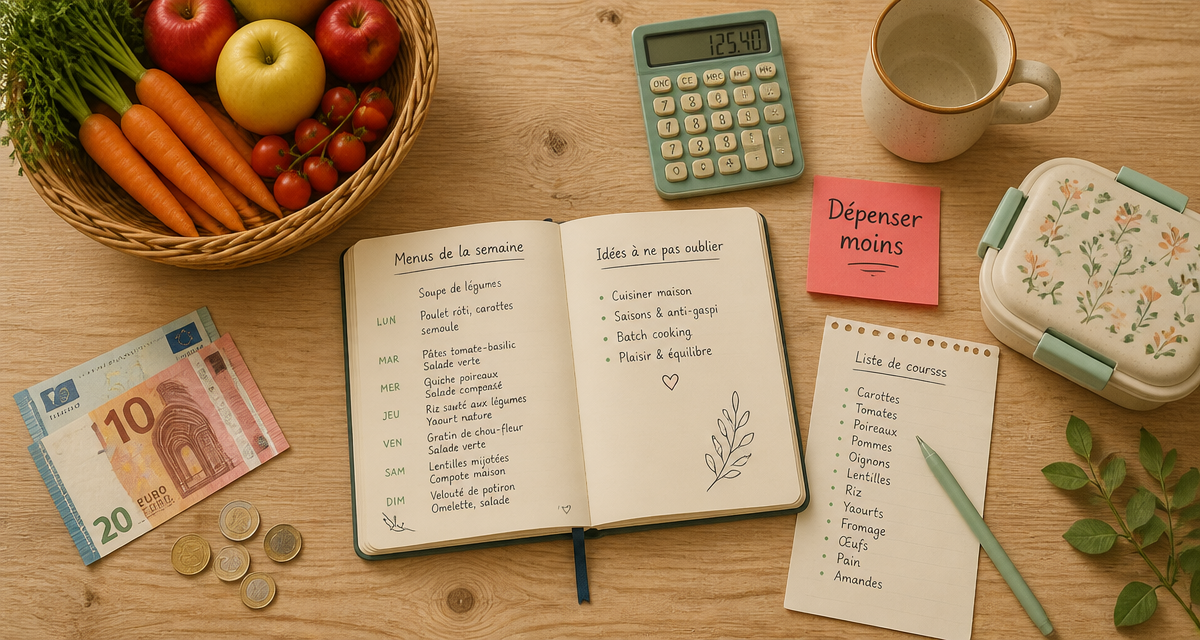 125.40
Dépenser
moins
Menus de la semaine
Soupe de légumes
LUN
Poulet rôti, carottes
semoule
MAR
Pâtes tomate-basilic
Salade verte
MER
Quiche poireaux
Salade composé
JEU
Riz sauté aux légumes
Yaourt nature
VEN
Gratin de chou-fleur
Salade verte
SAM
Lentilles mijotées
Compote maison
DIM
Velouté de potiron
Omelette, salade
Idées à ne pas oublier
Cuisiner maison
Saisons & anti-gaspi
Batch cooking
Plaisir & équilibre
Liste de coursss
Carottes
Tomates
Poireaux
Pommes
Oignons
Lentilles
Riz
Yaourts
Fromage
Œufs
Pain
Amandes
10
EURO
20